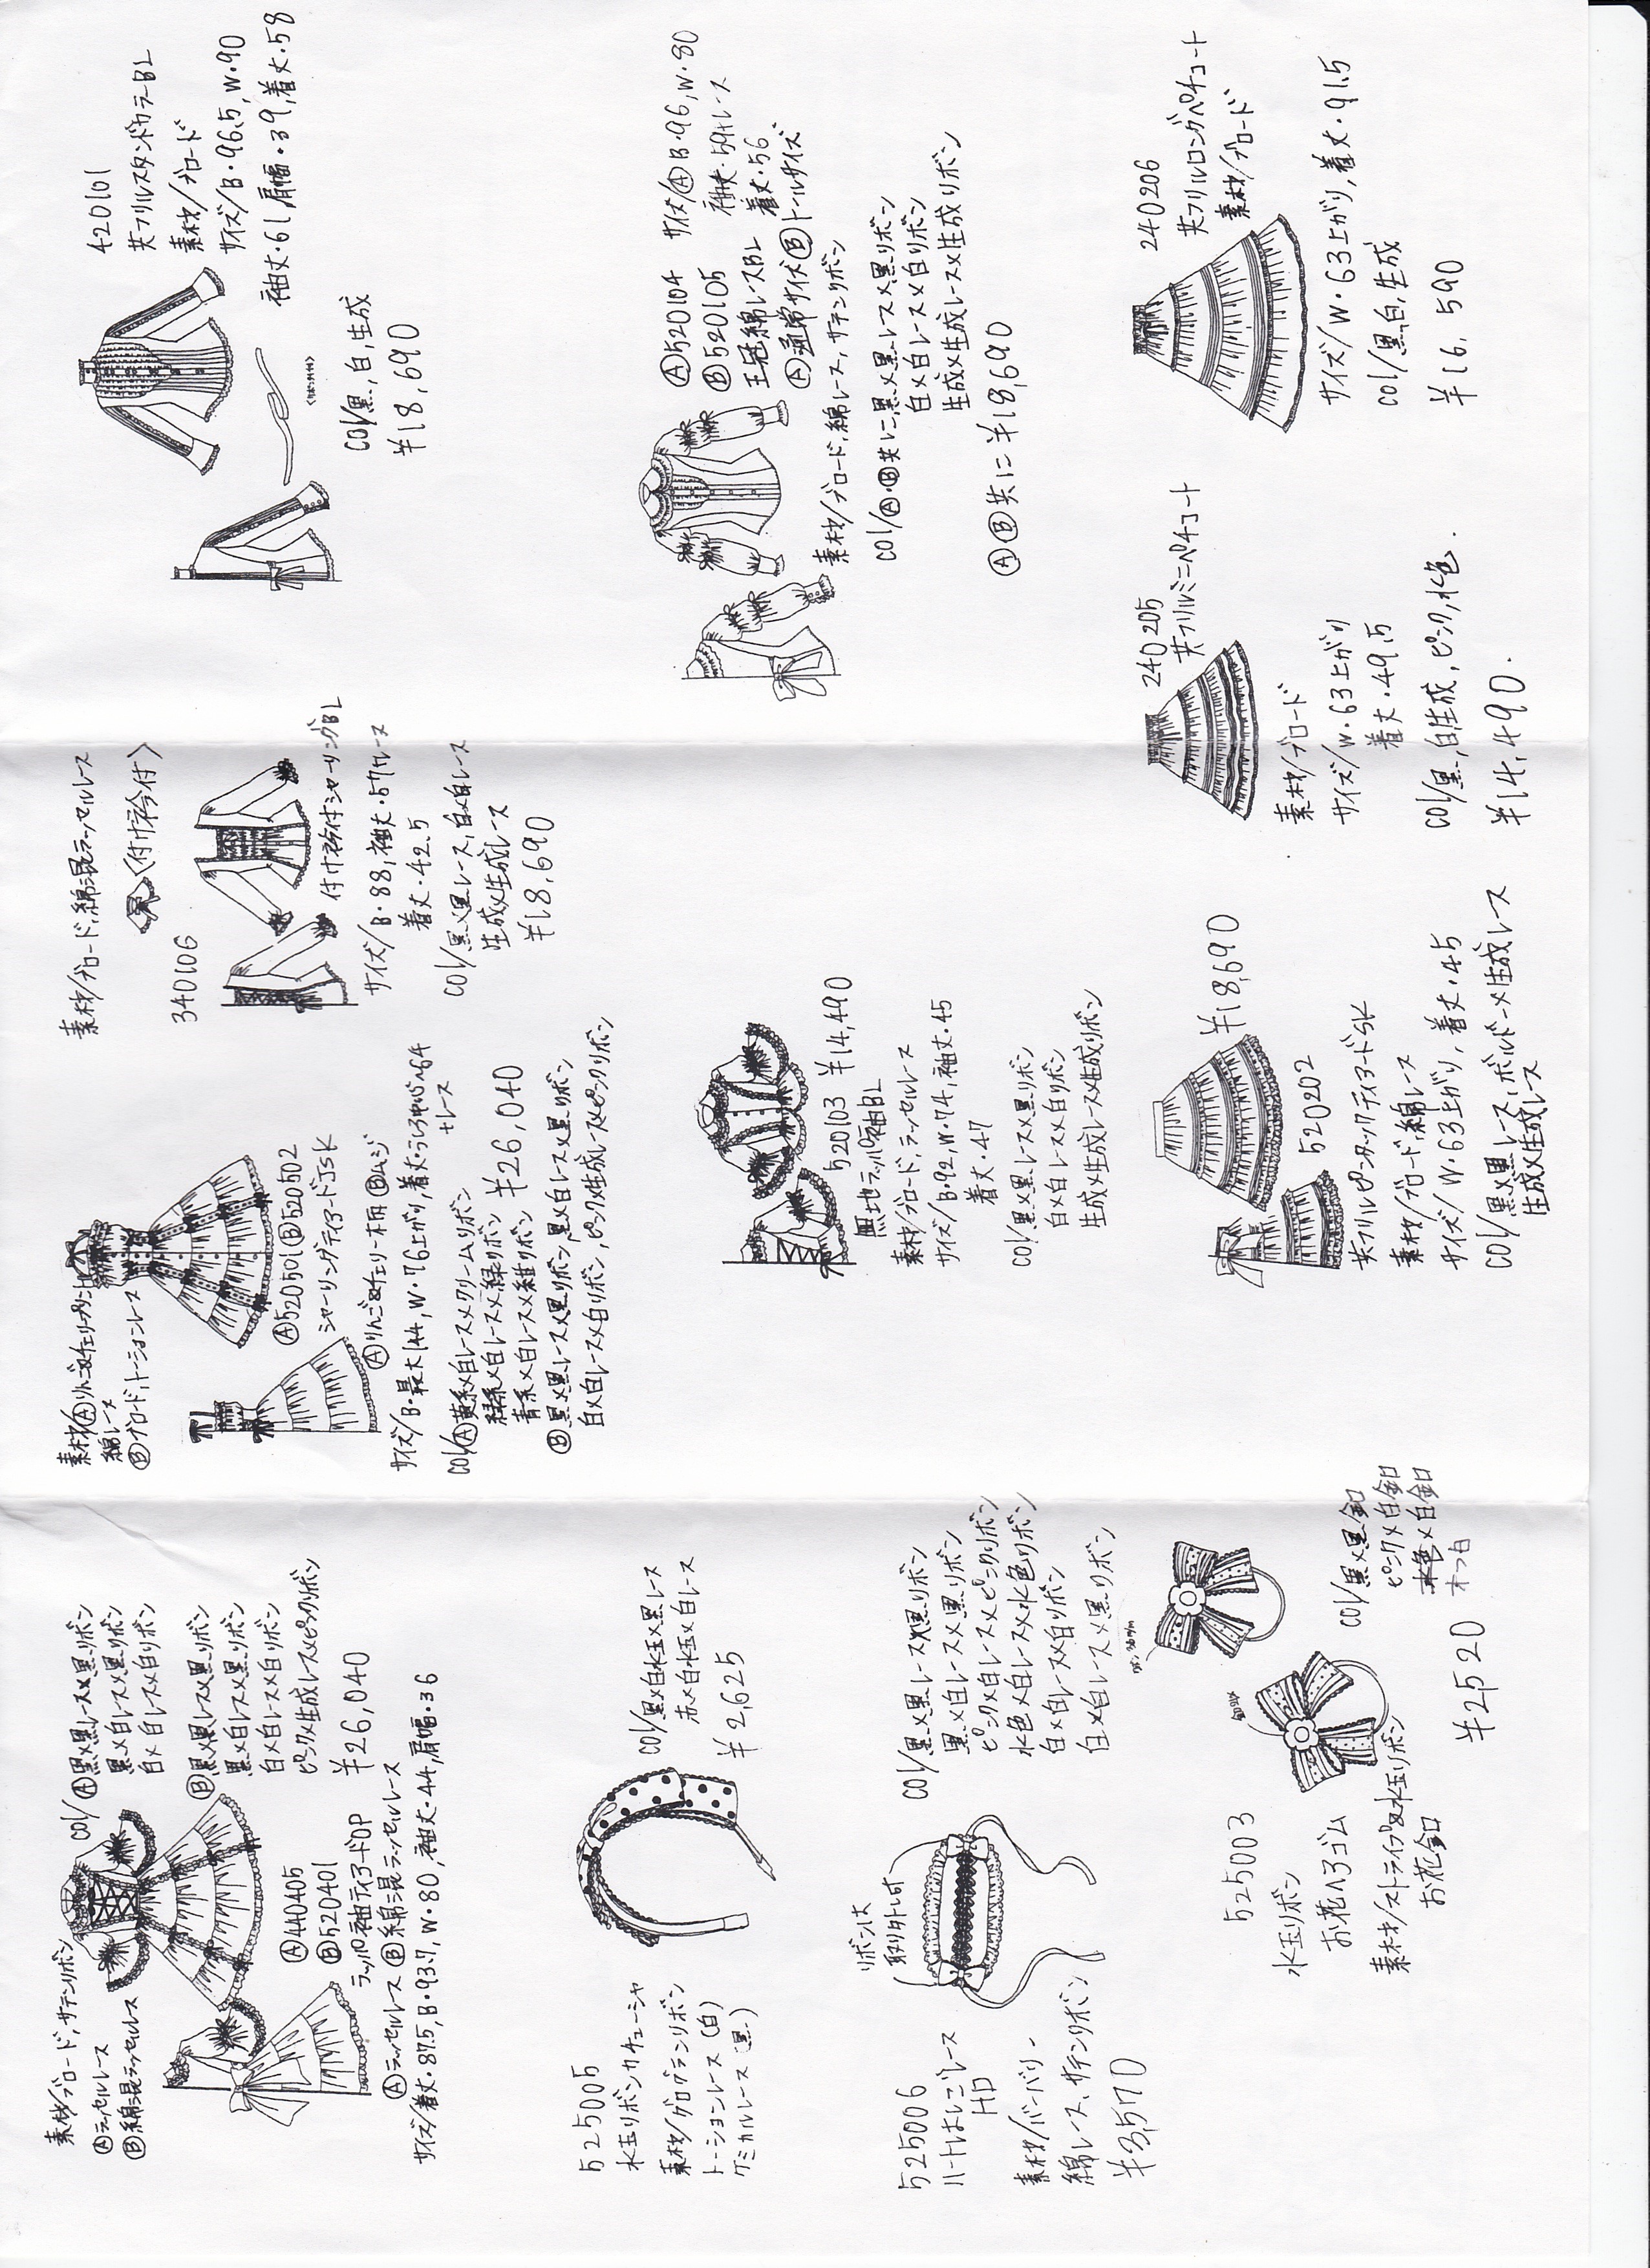 素材/ブロード,サテンリボン
Ⓐラッセルレース
Ⓑ綿混ラッセルレース
col/Ⓐ黒×黒レース×黒リボン
黒×白レース×黒リボン
白×白レース×白リボン
Ⓑ黒×黒レース×黒リボン
黒×白レース×黒リボン
白×白レース×白リボン
ピンク×生成レース×ピンクリボン
¥26,040
Ⓐ440405
Ⓑ520401
ラッパ袖ティアードOP
Ⓐラッセルレース Ⓑ綿混ラッセルレース
サイズ/着丈・87.5,B・93.7,W・80,袖丈・44,肩幅・36
素材/Ⓐりんご&チェリープリント
綿レース
Ⓑブロード,トーションレース
Ⓐ520501Ⓑ520502
シャーリングティアードJSK
Ⓐりんご&チェリー柄 Ⓑムジ
サイズ/B・最大144,W・76上がり,着丈うしろ中心〜64
+レース
col/Ⓐ黄系×白レース×クリームリボン
緑系×白レース×緑リボン
青系×白レース×紺リボン ¥26,040
Ⓑ黒×黒レース×黒リボン,黒×白レース×黒リボン
白×白レース×白リボン,ピンク×生成レース×ピンクリボン
素材/ブロード,綿混ラッセルレース
〈付け衿付〉
340106
付け衿付シャーリングBL
サイズ/B・88,袖丈・57+レース
着丈・42.5
col/黒×黒レース,白×白レース
生成×生成レース
¥18,690
420101
共フリルスタンドカラーBL
素材/ブロード
サイズ/B・96.5,W・90
袖丈・61,肩幅・39,着丈・58
col/黒,白,生成
¥18,690
525005
水玉リボンカチューシャ
素材/グログランリボン
トーションレース(白)
ケミカルレース(黒)
col/黒×白水玉×黒レース
赤×白水玉×白レース
¥2,625
520103 ¥14,490
無地ラッパ袖BL
素材/ブロード,ラッセルレース
サイズ/B・92,W・74,袖丈・45
着丈・47
col/黒×黒レース×黒リボン
白×白レース×白リボン
生成×生成レース×生成リボン
Ⓐ520104
Ⓑ520105
王冠綿レースBL
Ⓐ通常サイズⒷトールサイズ
サイズ/ⒶB・96,W・80
袖丈・59+レース
着丈・56
素材/ブロード,綿レース,サテンリボン
col/Ⓐ・Ⓑ共に黒×黒レース×黒リボン
白×白レース×白リボン
生成×生成レース×生成リボン
ⒶⒷ共に¥18,690
525006
ハートはしごレース
HD
素材/バーバリー
綿レース,サテンリボン
¥3,570
リボンは
取り外し可
col/黒×黒レース×黒リボン
黒×白レース×黒リボン
ピンク×白レース×ピンクリボン
水色×白レース×水色リボン
白×白レース×白リボン
白×白レース×黒リボン
525003
水玉リボン
お花ヘアゴム
素材/ストライプ&水玉リボン
お花釦
col/黒×黒釦
ピンク×白釦
水色×白釦
¥2,520
520202
¥18,690
共フリルピンタックティアードSK
素材/ブロード,綿レース
サイズ/W・63上がり,着丈・45
col/黒×黒レース,ボルドー×生成レース
生成×生成レース
240205
共フリルミニペチコート
素材/ブロード
サイズ/W・63上がり
着丈・49.5
col/黒,白,生成,ピンク,水色.
¥14,490.
240206
共フリルロングペチコート
素材/ブロード
サイズ/W・63上がり,着丈・91.5
col/黒,白,生成
¥16,590